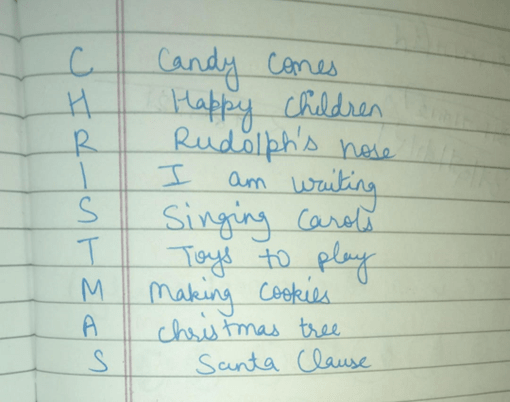 C Candy Cones
H Happy Children
R Rudolph's nose
I I am waiting
S Singing Carols
T Toys to play
M Making Cookies
A Christmas tree
S Santa Clause